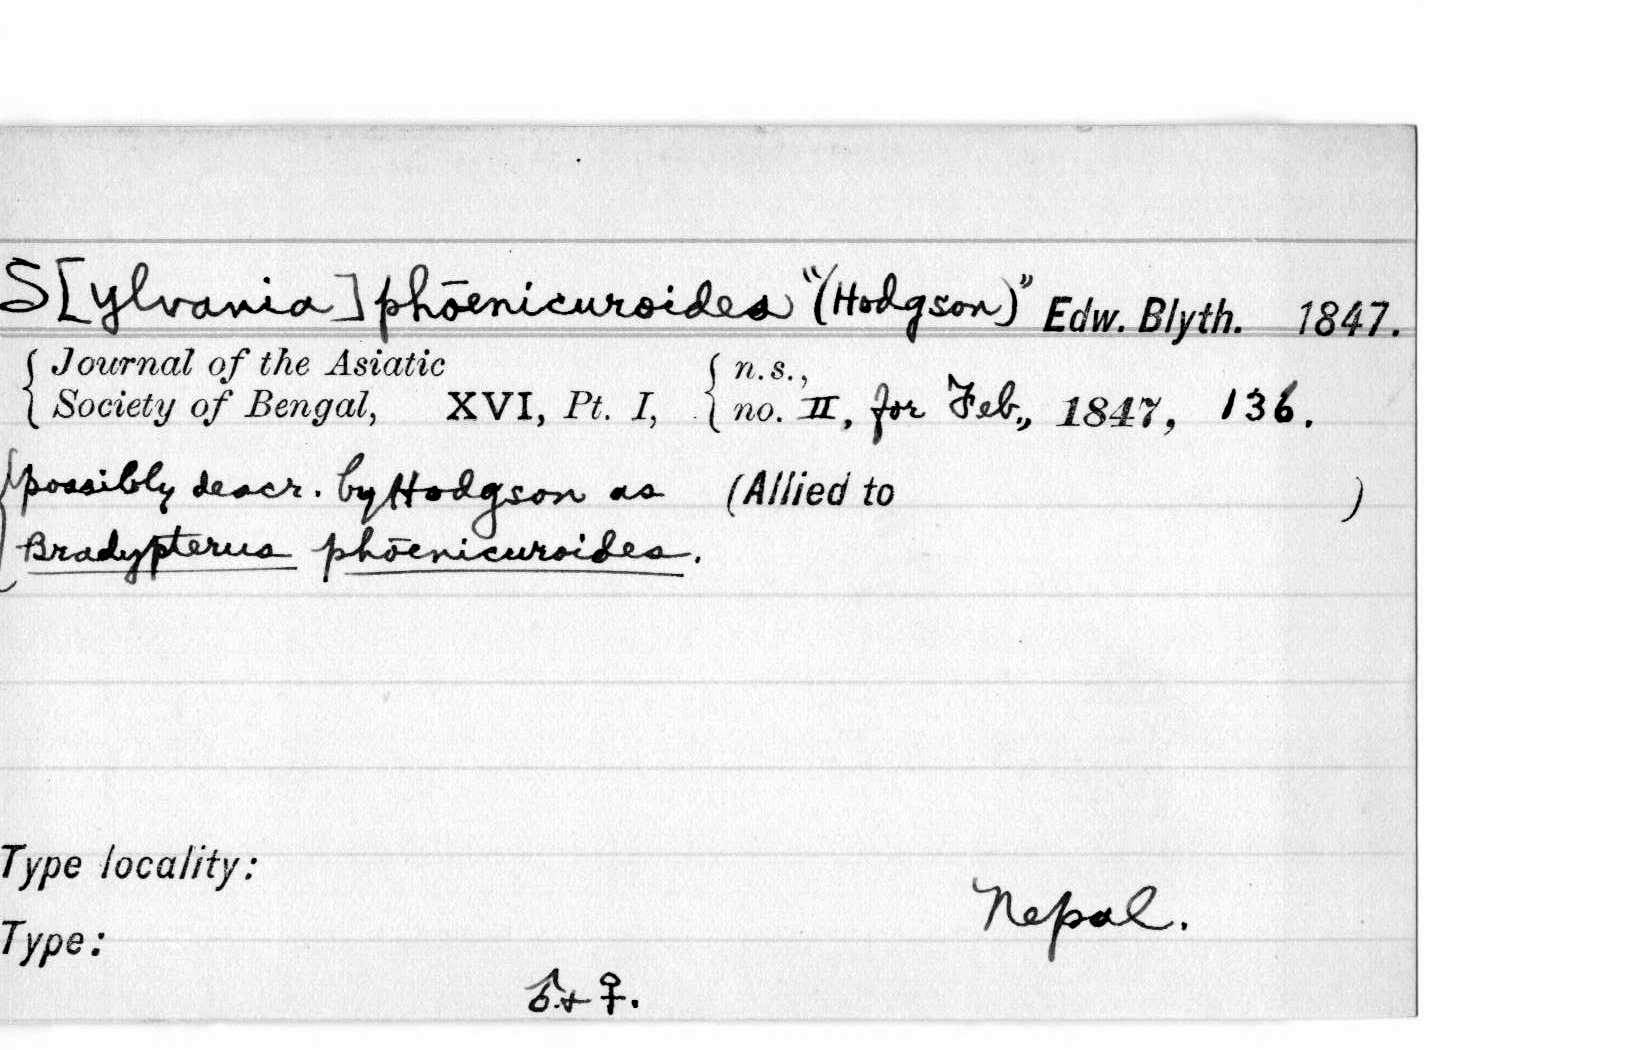 S[ylvania] phōenicuroides "(Hodgson)" Edw. Blyth. 1847.
Journal of the Asiatic
Society of Bengal, XVI, Pt. I, n.s.,
no. II, for Feb., 1847, 136.
possibly descr. by Hodgson as (Allied to )
Bradypterus phōenicuroides.
Type locality:
Nepal.
Type:
♂ & ♀.